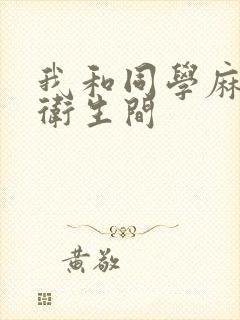 我和同學麻
衛生間
黃敬